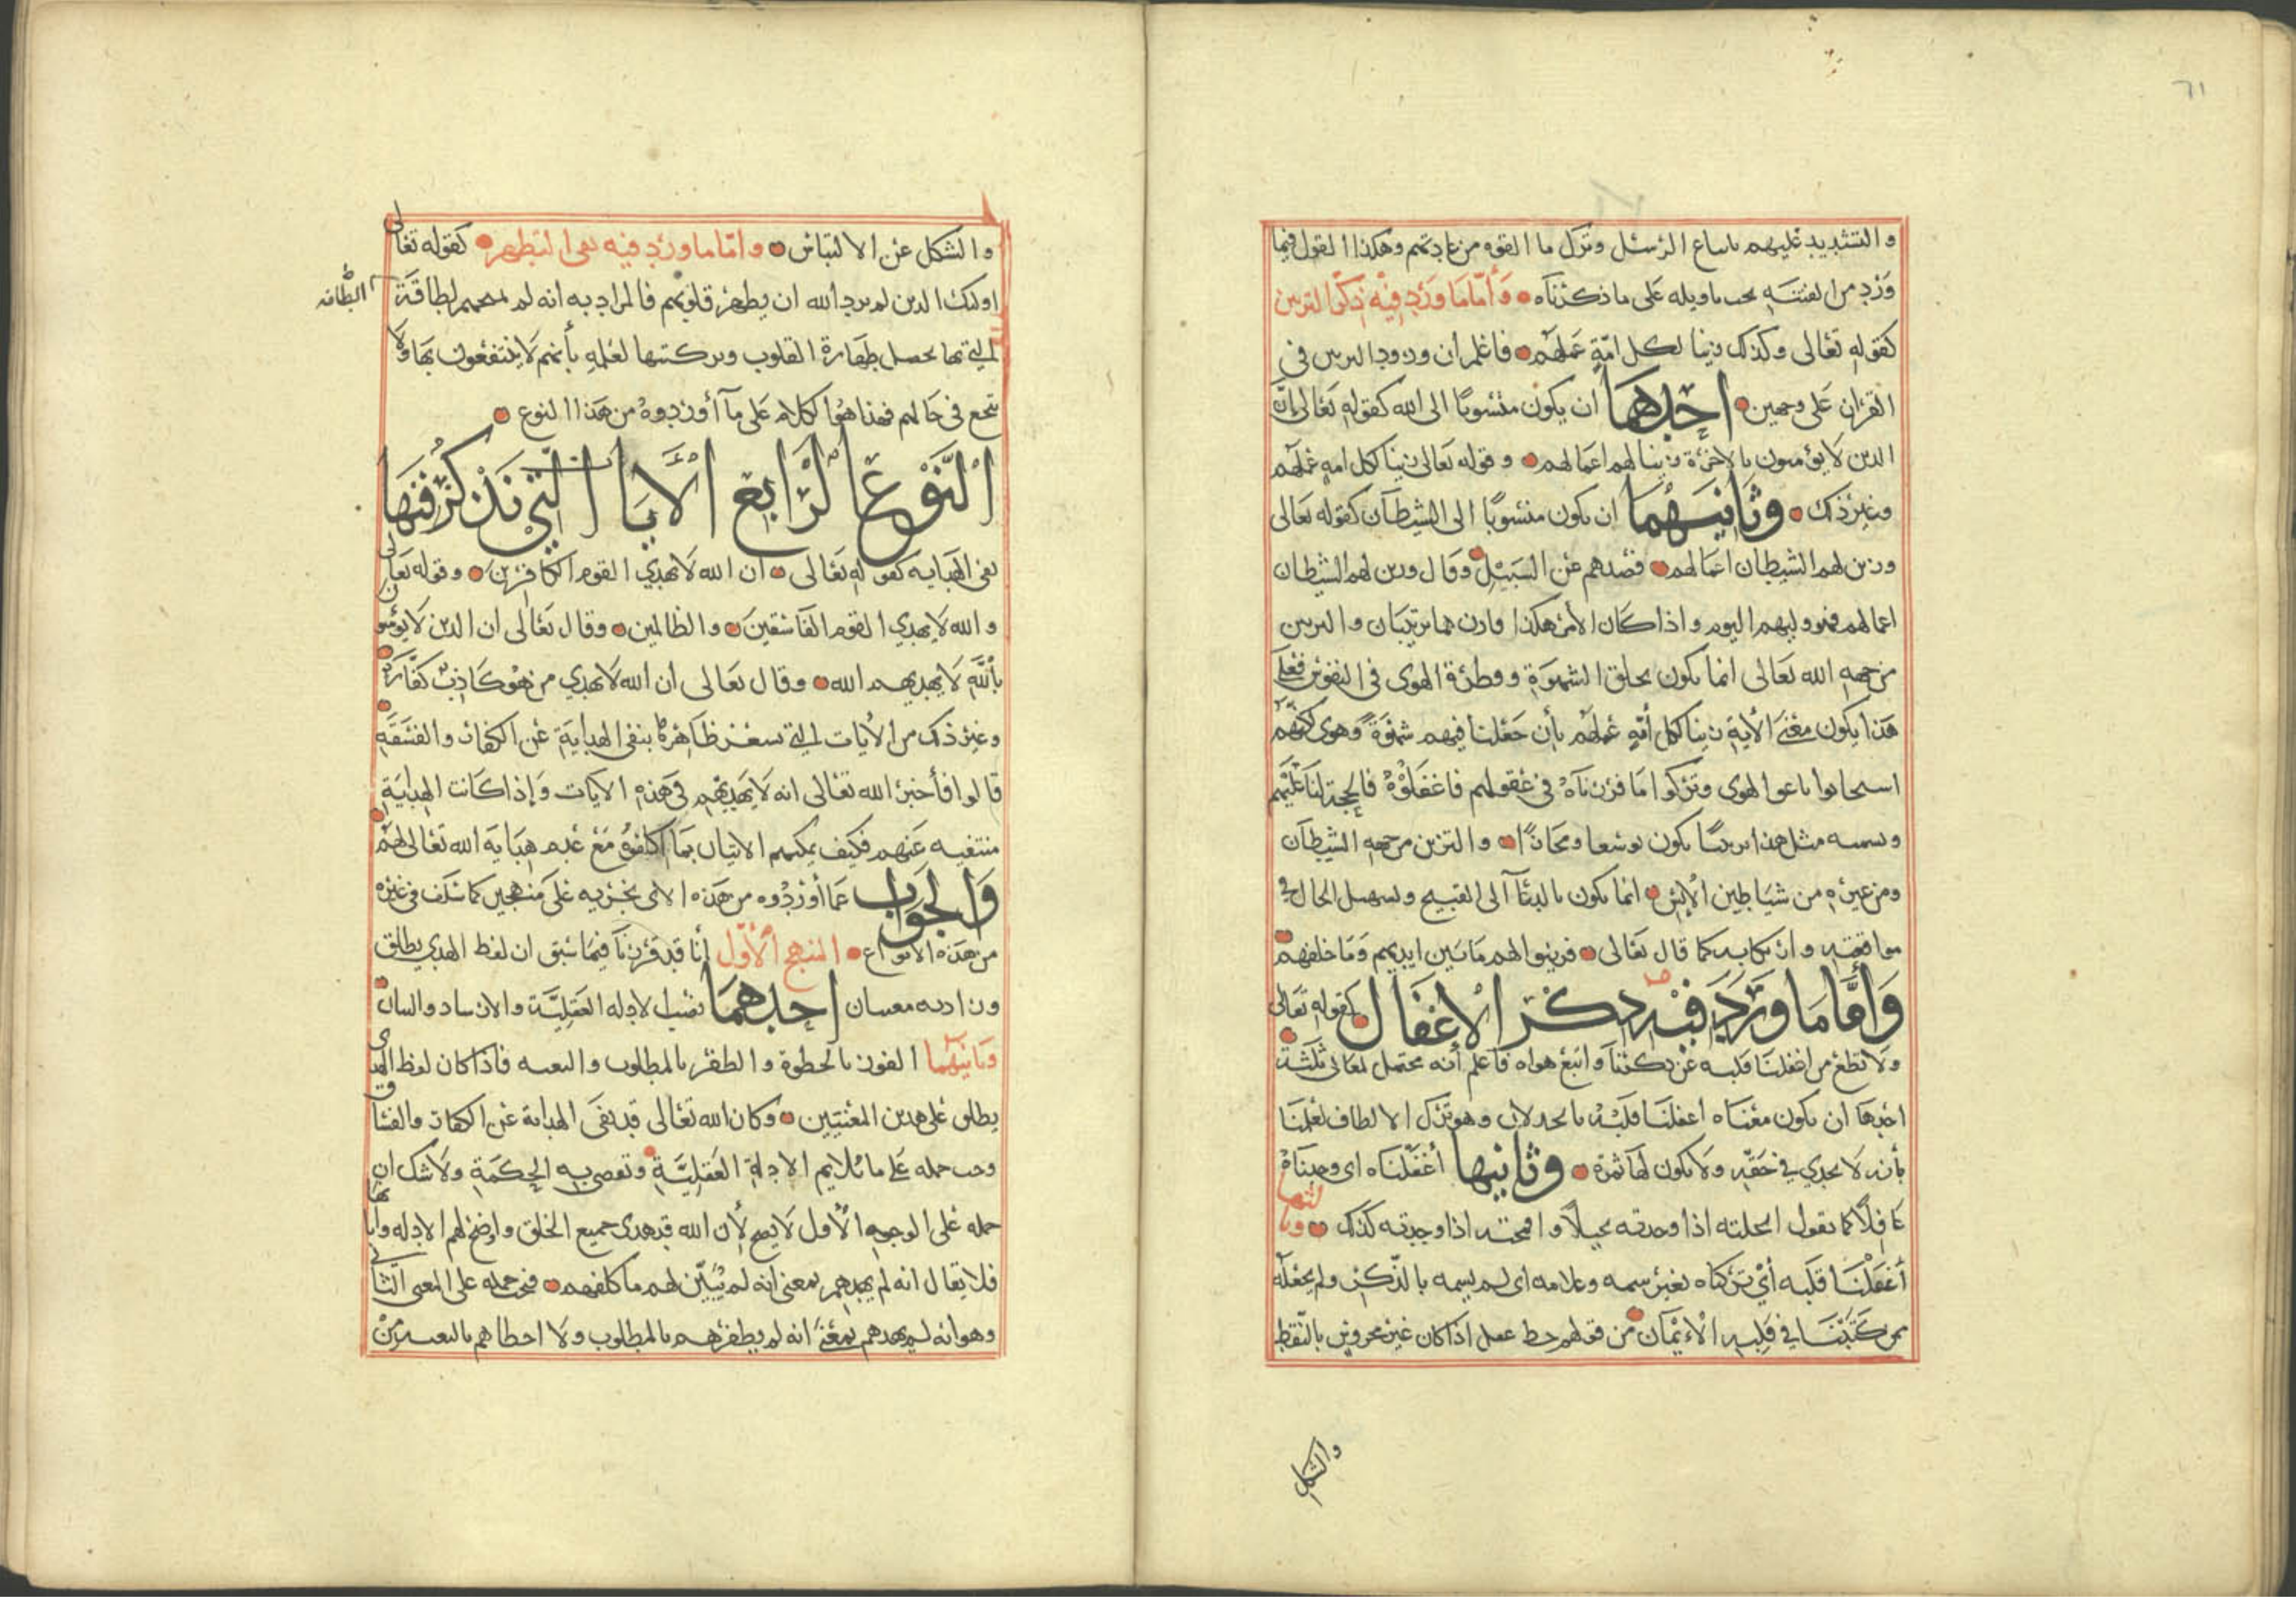 ٦١
والتشديد عليهم باتباع الرسل وترك ما القوه من عادتهم وهكذا القول فيما
ورد من الفتنة يجب تاويله على ما ذكرناه وأما ما ورد فيه ذكر التزيين
كقوله تعالى وكذلك زينا لكل امة عملهم فاعلم ان ورود التزيين في
القران على وجهين احدهما ان يكون منسوبا الى الله كقوله تعالى إن
الذين لا يؤمنون بالاخرة زينا لهم اعمالهم وقوله تعالى زينا لكل امة عملهم
وغير ذلك وثانيهما ان يكون منسوبا الى الشيطان كقوله تعالى
وزين لهم الشيطان اعمالهم فصدهم عن السبيل وقال وزين لهم الشيطان
اعمالهم فهو وليهم اليوم واذا كان الأمر هكذا فاذن هما تزيينان والتزيين
من جهة الله تعالى انما يكون بخلق الشهوة وفطرة الهوى في النفوس فعلى
هذا يكون معنى الأية زينا لكل أمة عملهم بأن جعلنا فيهم شهوة وهوى لكنهم
اتبعوا الهوى وتركوا ما قررناه في عقولهم فاغفلوه فالحجة لنا عليهم
وتسميه مثل هذا تزيينا يكون توسعا ومجازا والتزيين من جهة الشيطان
ومن غيره من شياطين الإنس انما يكون بالدعاء الى القبيح وتسهيل الحال في
مواقعته وارتكابه كما قال تعالى فزينوا لهم ما بين ايديهم وما خلفهم
وأما ما ورد فيه ذكر الاغفال كقوله تعالى
ولا تطع من اغفلنا قلبه عن ذكرنا واتبع هواه فاعلم أنه يحتمل لمعان ثلثة
احدها ان يكون معناه أغفلنا قلبه بالخذلان وهو ترك الالطاف لعلمنا
بأنه لا يجدي في حقه ولا يكون لها ثمرة وثانيها أغفلناه اى وجدناه
غافلا كما تقول ابخلته اذا وجدته بخيلا وافحمته اذا وجدته كذلك وثالثها
أغفلنا قلبه أي تركناه بغير سمه وعلامه اى لم يسمه بالذكر ولم يجعله
ممن كتبنا في قلبه الإيمان من قولهم خط غفل اذا كان غير محروس بالنقط
والشكل
والشكل عن الالتباس واما ما ورد فيه نفي التطهر كقوله تعالى
اولئك الذين لم يرد الله ان يطهر قلوبهم فالمراد به انه لم يمنحهم لطافة
الطافه
التي بها يحصل طهارة القلوب وتزكيتها لعلمه بأنهم لا ينتفعون بها ولا
تنجع في حالهم فهذا هو الكلام على ما أوردوه من هذا النوع
النوع الرابع الأيات التي نذكر فيها
نفى الهدايه كقوله تعالى ان الله لا يهدي القوم الكافرين وقوله تعالى
والله لا يهدي القوم الفاسقين والظالمين وقال تعالى ان الذين لا يؤمنون
بأيات الله لا يهديهم الله وقال تعالى ان الله لا يهدي من هو كاذب كفار
وغير ذلك من الأيات التي تشعر ظاهرها بنفى الهداية عن الكفار والفسقة
قالوا فأخبر الله تعالى انه لا يهديهم في هذه الايات وإذا كانت الهداية
منتفيه عنهم فكيف يمكنهم الاتيان بما كلفوه مع عدم هداية الله تعالى لهم
والجواب عما أوردوه من هذه الاى نجريه على منهجين كما سلف في غيره
من هذه الانواع المنهج الأول أنا قد قررنا فيما سبق ان لفظ الهدي يطلق
ويراد به معنيان احدهما نصب الادله العقلية والارشاد والبيان
وثانيهما الفوز بالحظوة والظفر بالمطلوب والبغيه فاذا كان لفظ الهدى
يطلق على هذين المعنيين وكان الله تعالى قد نفى الهداية عن الكفار والفساق
وجب حمله على ما يلايم الادلة العقلية وتقضي به الحكمة ولا شك ان
حمله على الوجه الأول لا يصح لأن الله قد هدى جميع الخلق واوضح لهم الادله وابانها
فلا يقال انه لم يهدهم بمعنى انه لم يبين لهم ما كلفهم فيجب حمله على المعنى الثاني
وهو انه لم يهدهم بمعنى انه لم يظفرهم بالمطلوب ولا احظاهم بالبغية من